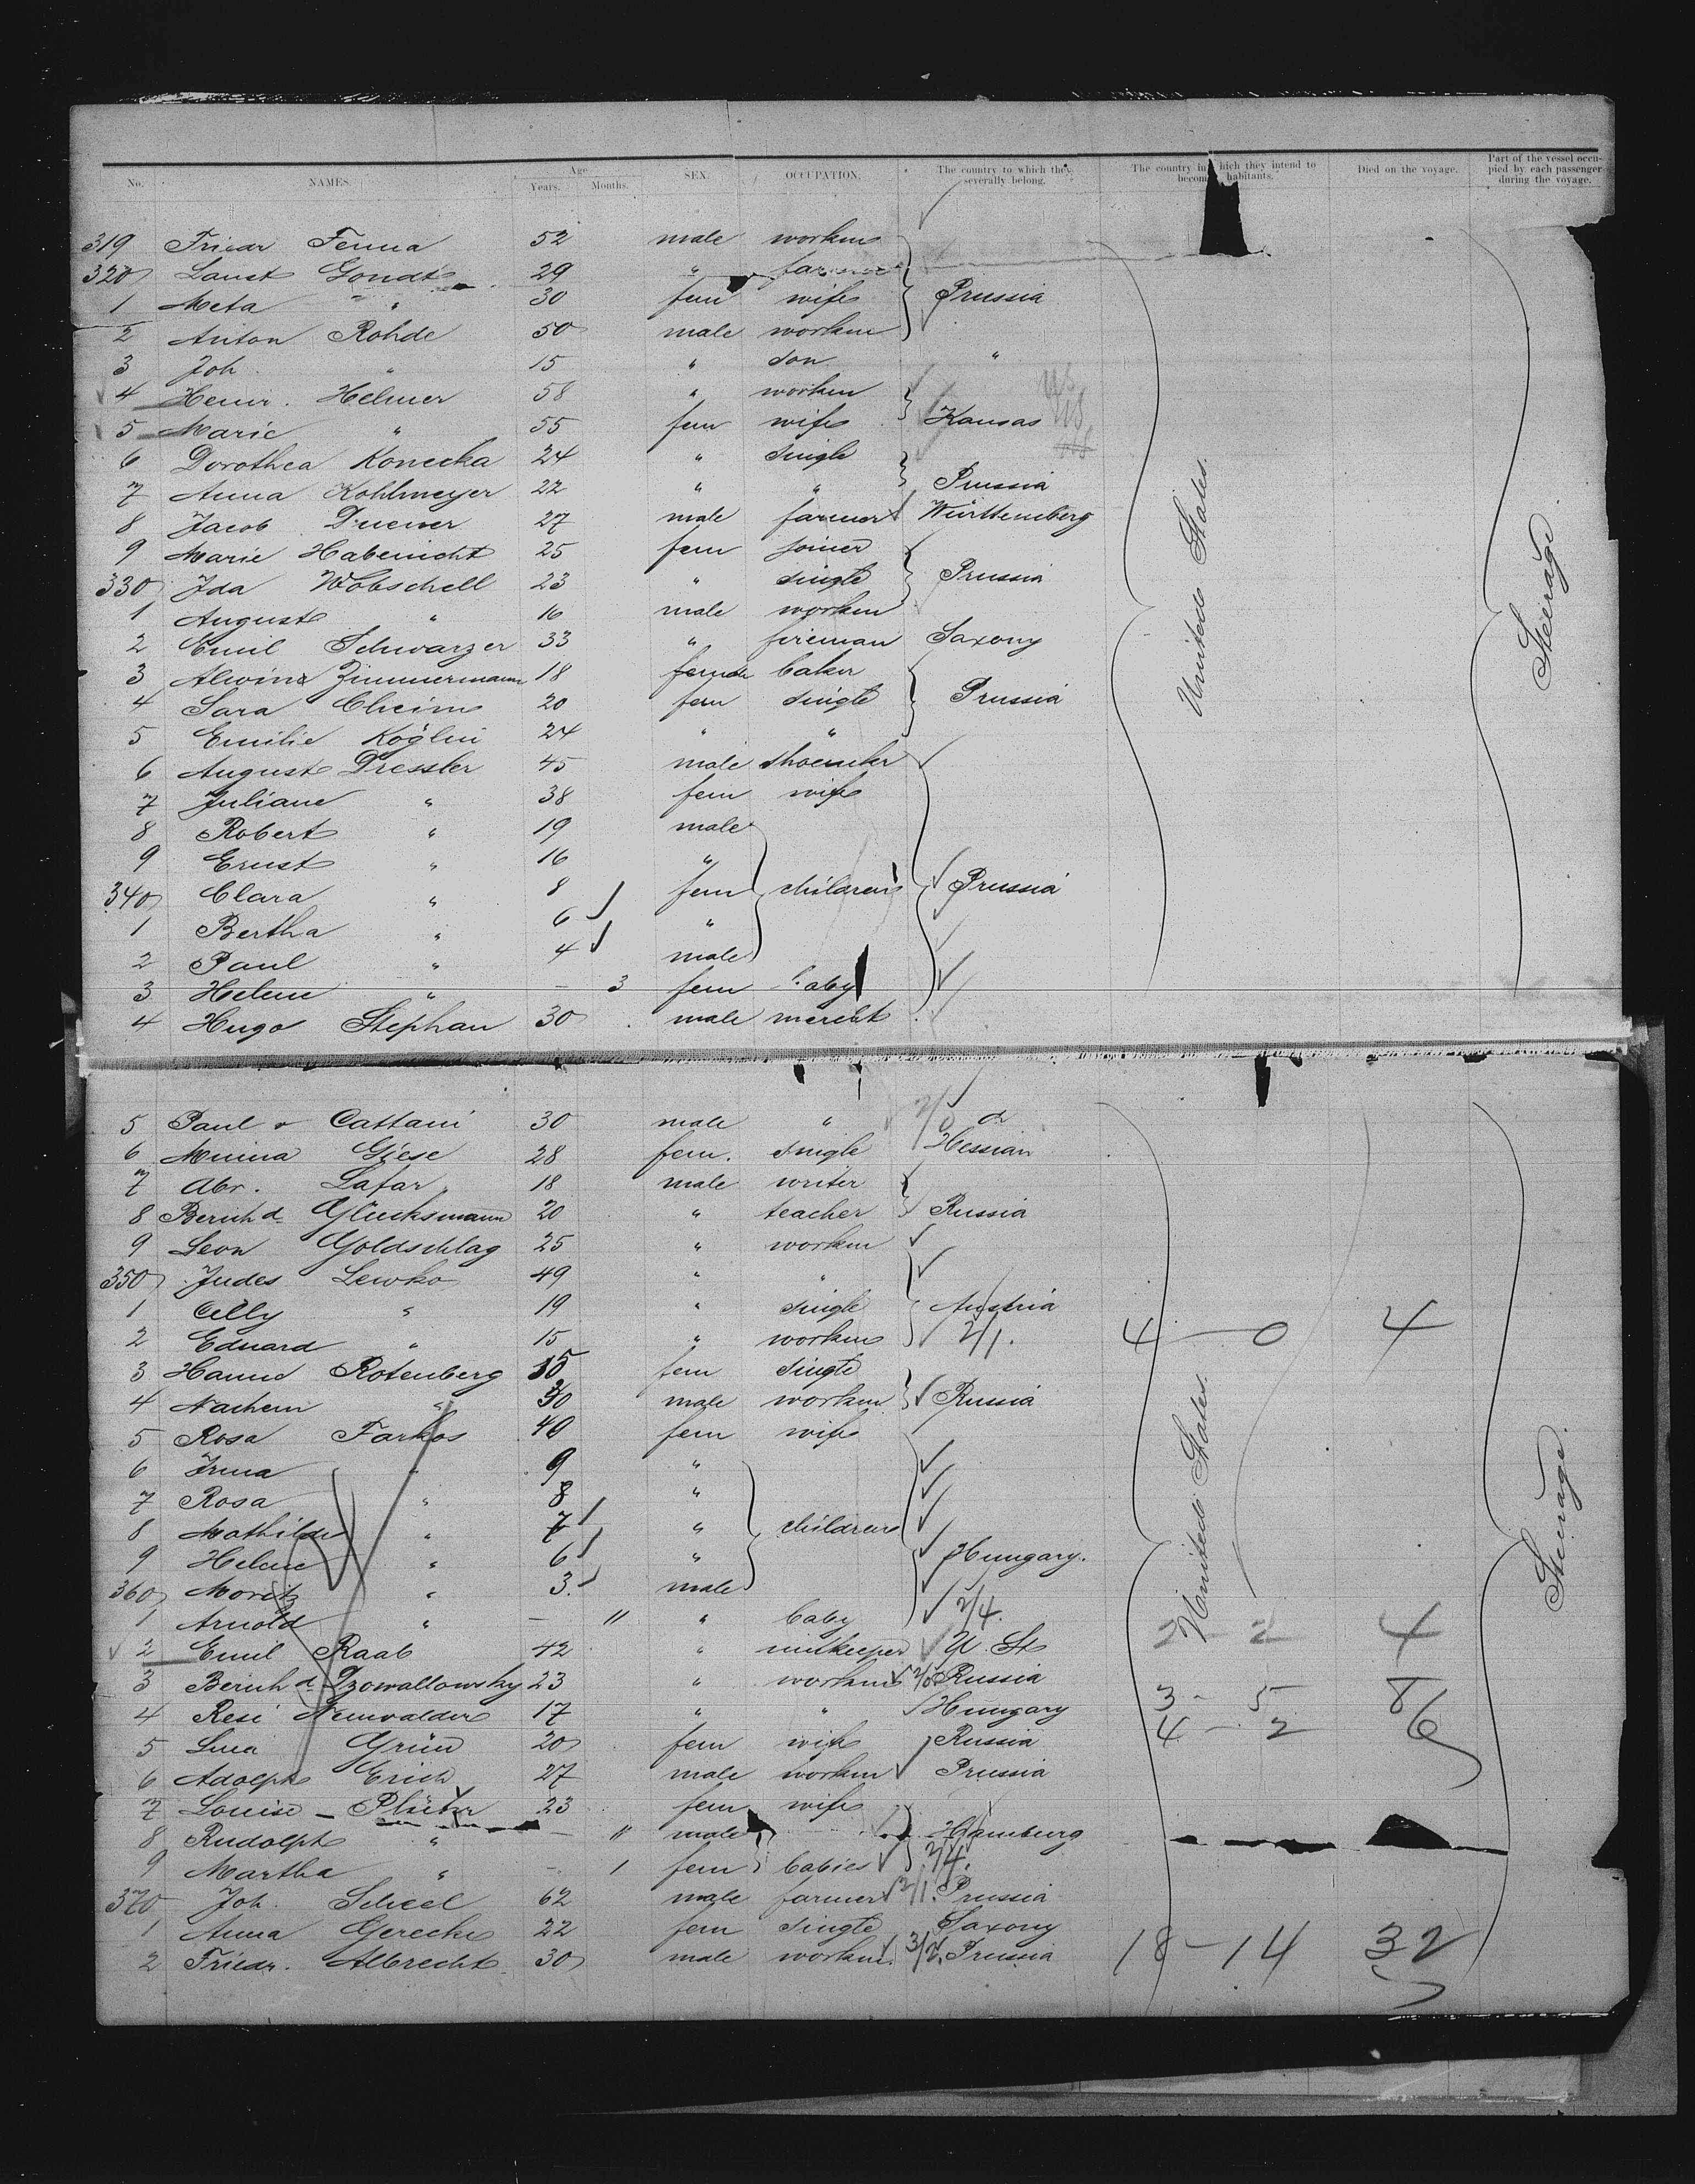 No. NAMES. Age Years. Months. SEX. OCCUPATION. The country to which they severally belong. The country in which they intend to become inhabitants. Died on the voyage. Part of the vessel occupied by each passenger during the voyage.
319 Friedr Fenna 52 male workm
320 Laust Gondt 29 " farmer
1 Meta " 30 fem wife Prussia
2 Anton Rohde 50 male workm
3 Joh. " 15 " son "
4 Heinr. Helmer 58 " workm US
5 Marie " 55 fem wife Kansas US
6 Dorothea Konecka 24 " single
7 Anna Kohlmeyer 22 " " Prussia
8 Jacob 27 male farmer Württemberg
9 Marie Habenicht 25 fem joiner
330 Ida Wobschell 23 " single Prussia
1 August " 16 male workm
2 Emil Schwarzer 33 " fireman Saxony
3 Alwina Zimmermann 18 female baker
4 Sara Cheim 20 fem single Prussia
5 Emilie Köglin 24 " "
6 August Dressler 45 male shoemker
7 Juliane " 38 fem wife
8 Robert " 19 male
9 Ernst " 16 "
340 Clara " 8 fem children Prussia
1 Bertha " 6 "
2 Paul " 4 male
3 Helene " — 3 fem baby
4 Hugo Stephan 30 male mercht
United States.
Steerage
5 Paul v Cattani 30 male "
6 Minna Giese 28 fem. single Hessian
7 Abr. Lafar 18 male writer
8 Bernhd Glücksmann 20 " teacher Russia
9 Leon Goldschlag 25 " workm
350 Judes Lewko 49 " "
1 Cilly " 19 " single Austria
2 Eduard " 15 " workm 2/1. 4 — 0 4
3 Hanne Rotenberg 15 fem single
4 Nachem " 30 male workm Russia
5 Rosa Farkos 40 fem wife
6 Irma " 9 "
7 Rosa " 8 "
8 Mathilde " 7 " children
9 Helene " 6 " Hungary.
360 Moritz " 3. male
1 Arnold " — 11 " baby 2/4.
2 Emil Raab 42 " innkeeper U. St 2 - 2 4
3 Bernhd Dzowallowsky 23 " workm Russia
4 Resi Neuwalder 17 " " Hungary 3 - 5 8
5 Grün 20 fem wife Russia 4 - 2 6
6 Adolph Erich 27 male workm Prussia
7 Louise — 23 fem wife
8 Rudolph " — 11 male Hamburg
9 Martha " — 1 fem babies 2/4.
370 Joh. Scheel 62 male farmer 2/1. Prussia
1 Anna Gerecke 22 fem single Saxony
2 Friedr. Albrecht 30 male workm. Prussia 18 — 14 32
United States.
Steerage.